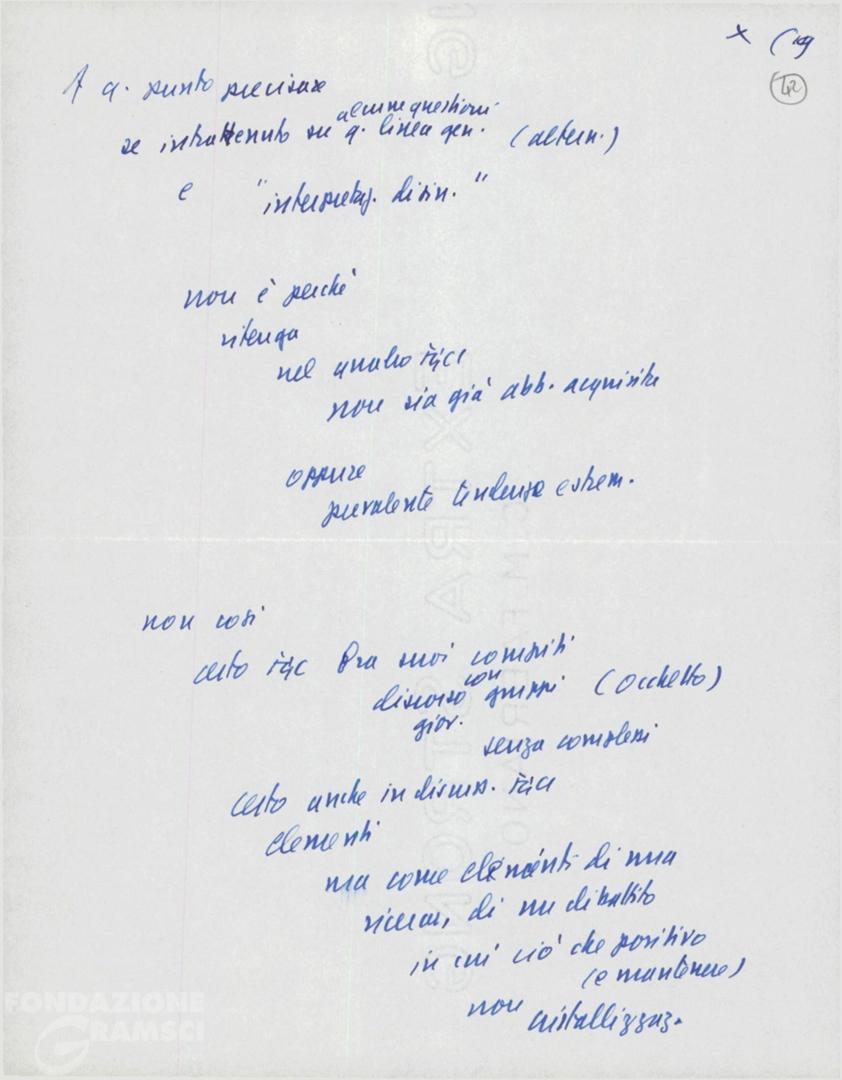 A q. punto precisare
alcune questioni
se intrattenuto su q. linea gen. (altern.)
e "interpretaz. di sin."
non è perché
ritenga
nel quadro FGCI
non sia già abb. acquisite
oppure
prevalente tendenze estrem.
non così
certo FGC tra suoi compiti
discorso con gruppi (Occhetto)
giov.
senza complessi
certo anche in discuss. FGCI
elementi
ma come elementi di una
ricerca, di un dibattito
in cui ciò che positivo
(e mantenere)
non cristallizzaz.
42
FONDAZIONE
GRAMSCI